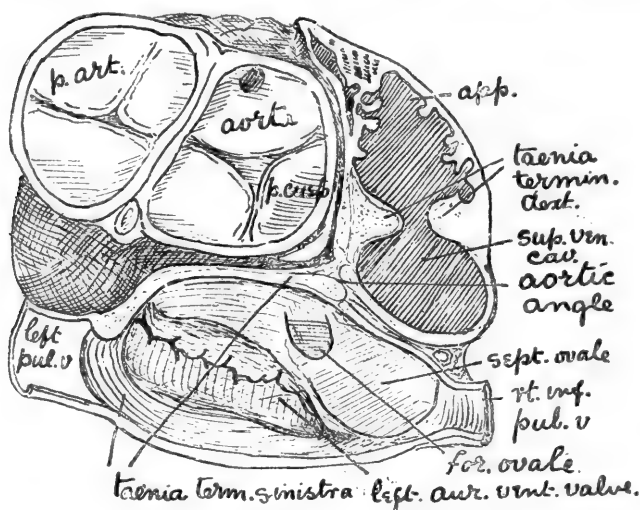 p. art.
aorta
p. cusp
app.
taenia
termin.
dext.
sup. ven.
cav.
aortic
angle
left
pul. v
sept. ovale
rt. inf.
pul. v
for. ovale
taenia term. sinistra left. aur. vent. valve.